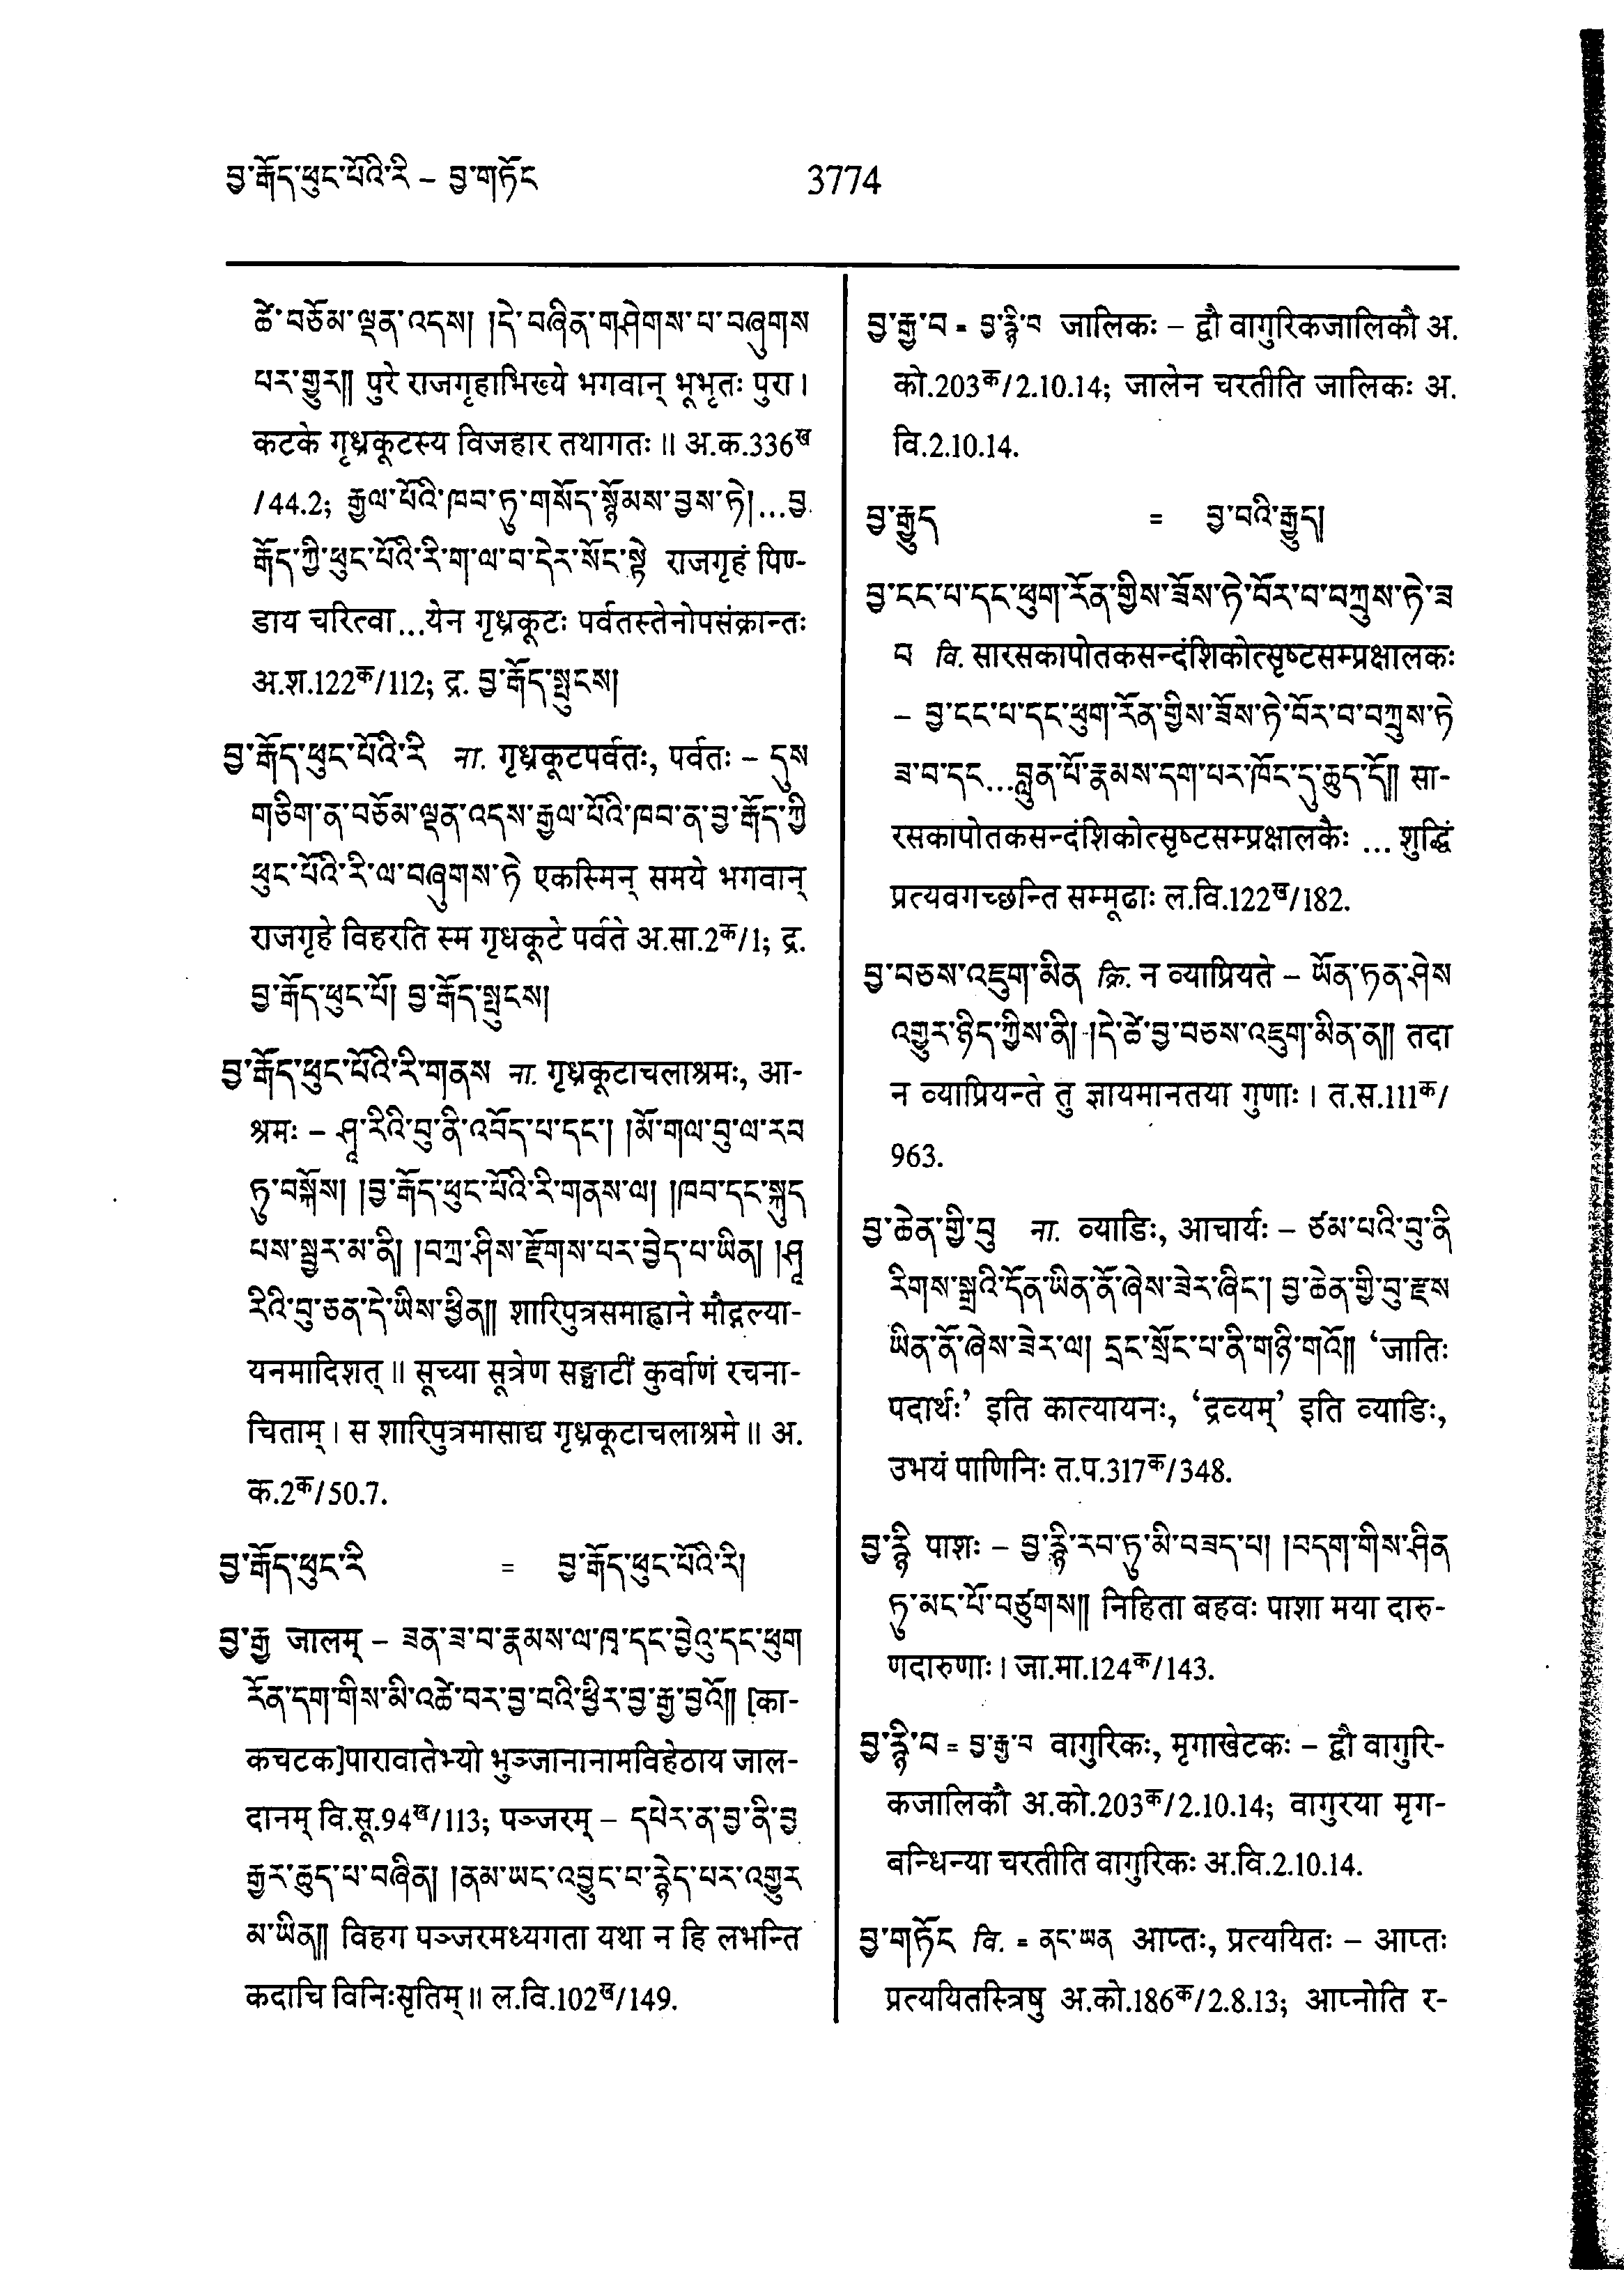 བྱ་རྒོད་ཕུང་པོའི་རི – བྱ་གཏོང
3774
ཚེ་བཅོམ་ལྡན་འདས། །དེ་བཞིན་གཤེགས་པ་བཞུགས
པར་གྱུར༎ पुरे राजगृहाभिख्ये भगवान् भूभृतः पुरा ।
कटके गृध्रकूटस्य विजहार तथागतः ॥ अ.क.336ख
/44.2; རྒྱལ་པོའི་ཁབ་ཏུ་གསོད་སྙོམས་བྱས་ཏེ།...བྱ་
རྒོད་ཀྱི་ཕུང་པོའི་རི་ག་ལ་བ་དེར་སོང་སྟེ राजगृहं पिण-
डाय चरित्वा...येन गृध्रकूटः पर्वतस्तेनोपसंक्रान्तः
अ.श.122क/112; द्र. བྱ་རྒོད་སྤུངས།
བྱ་རྒོད་ཕུང་པོའི་རི ना. गृध्रकूटपर्वतः, पर्वतः – དུས
གཅིག་ན་བཅོམ་ལྡན་འདས་རྒྱལ་པོའི་ཁབ་ན་བྱ་རྒོད་ཀྱི
ཕུང་པོའི་རི་ལ་བཞུགས་ཏེ एकस्मिन् समये भगवान्
राजगृहे विहरति स्म गृधकूटे पर्वते अ.सा.2क/1; द्र.
བྱ་རྒོད་ཕུང་པོ། བྱ་རྒོད་སྤུངས།
བྱ་རྒོད་ཕུང་པོའི་རི་གནས ना. गृध्रकूटाचलाश्रमः, आ-
श्रमः – ཤཱ་རིའི་བུ་ནི་འབོད་པ་དང་། །མོ་གལ་བུ་ལ་རབ
ཏུ་བསྐོས། །བྱ་རྒོད་ཕུང་པོའི་རི་གནས་ལ། །ཁབ་དང་སྐུད
པས་སྦྱར་མ་ནི། །བཀྲ་ཤིས་རྫོགས་པར་བྱེད་པ་ཡིན། །ཤཱ
རིའི་བུ་ཅན་དེ་ཡིས་ཕྱིན༎ शारिपुत्रसमाह्वाने मौद्गल्या-
यनमादिशत् ॥ सूच्या सूत्रेण सङ्घाटीं कुर्वाणं रचना-
चिताम् । स शारिपुत्रमासाद्य गृध्रकूटाचलाश्रमे ॥ अ.
क.2क/50.7.
བྱ་རྒོད་ཕུང་རི = བྱ་རྒོད་ཕུང་པོའི་རི།
བྱ་རྒྱ जालम् – ཟན་ཟ་བ་རྣམས་ལ་ཁྭ་དང་བྱེའུ་དང་ཕུག
རོན་དག་གིས་མི་འཚེ་བར་བྱ་བའི་ཕྱིར་བྱ་རྒྱ་བྱའོ༎ [का-
कचटक]पारावातेभ्यो भुञ्जानानामविहेठाय जाल-
दानम् वि.सू.94ख/113; पञ्जरम् – དཔེར་ན་བྱ་ནི་བྱ
རྒྱར་ཆུད་པ་བཞིན། །ནམ་ཡང་འབྱུང་བ་རྙེད་པར་འགྱུར
མ་ཡིན༎ विहग पञ्जरमध्यगता यथा न हि लभन्ति
कदाचि विनिःसृतिम् ॥ ल.वि.102ख/149.
བྱ་རྒྱ་བ = བྱ་རྙི་བ जालिकः – द्वौ वागुरिकजालिकौ अ.
को.203क/2.10.14; जालेन चरतीति जालिकः अ.
वि.2.10.14.
བྱ་རྒྱུད = བྱ་བའི་རྒྱུད།
བྱ་ངང་པ་དང་ཕུག་རོན་གྱིས་ཟོས་ཏེ་བོར་བ་བཀྲུས་ཏེ་ཟ
བ वि. सारसकापोतकसन्दंशिकोत्सृष्टसम्प्रक्षालकः
– བྱ་ངང་པ་དང་ཕུག་རོན་གྱིས་ཟོས་ཏེ་བོར་བ་བཀྲུས་ཏེ
ཟ་བ་དང...བླུན་པོ་རྣམས་དག་པར་ཁོང་དུ་ཆུད་དོ༎ सा-
रसकापोतकसन्दंशिकोत्सृष्टसम्प्रक्षालकैः ... शुद्धिं
प्रत्यवगच्छन्ति सम्मूढाः ल.वि.122ख/182.
བྱ་བཅས་འཇུག་མིན क्रि. न व्याप्रियते – ཡོན་ཏན་ཤེས
འགྱུར་ཉིད་ཀྱིས་ནི། །དེ་ཚེ་བྱ་བཅས་འཇུག་མིན་ན༎ तदा
न व्याप्रियन्ते तु ज्ञायमानतया गुणाः । त.स.111क/
963.
བྱ་ཆེན་གྱི་བུ ना. व्याडिः, आचार्यः – ཙམ་པའི་བུ་ནི
རིགས་སྒྲའི་དོན་ཡིན་ནོ་ཞེས་ཟེར་ཞིང་། བྱ་ཆེན་གྱི་བུ་རྫས
ཡིན་ནོ་ཞེས་ཟེར་ལ། དྲང་སྲོང་པ་ནི་གཉི་གའོ༎ ‘जातिः
पदार्थः’ इति कात्यायनः, ‘द्रव्यम्’ इति व्याडिः,
उभयं पाणिनिः त.प.317क/348.
བྱ་རྙི पाशः – བྱ་རྙི་རབ་ཏུ་མི་བཟད་པ། །བདག་གིས་ཤིན
ཏུ་མང་པོ་བཙུགས༎ निहिता बहवः पाशा मया दारु-
णदारुणाः । जा.मा.124क/143.
བྱ་རྙི་བ = བྱ་རྒྱ་བ वागुरिकः, मृगाखेटकः – द्वौ वागुरि-
कजालिकौ अ.को.203क/2.10.14; वागुरया मृग-
बन्धिन्या चरतीति वागुरिकः अ.वि.2.10.14.
བྱ་གཏོང वि. = ནང་ཡན आप्तः, प्रत्ययितः – आप्तः
प्रत्ययितस्त्रिषु अ.को.186क/2.8.13; आप्नोति र-